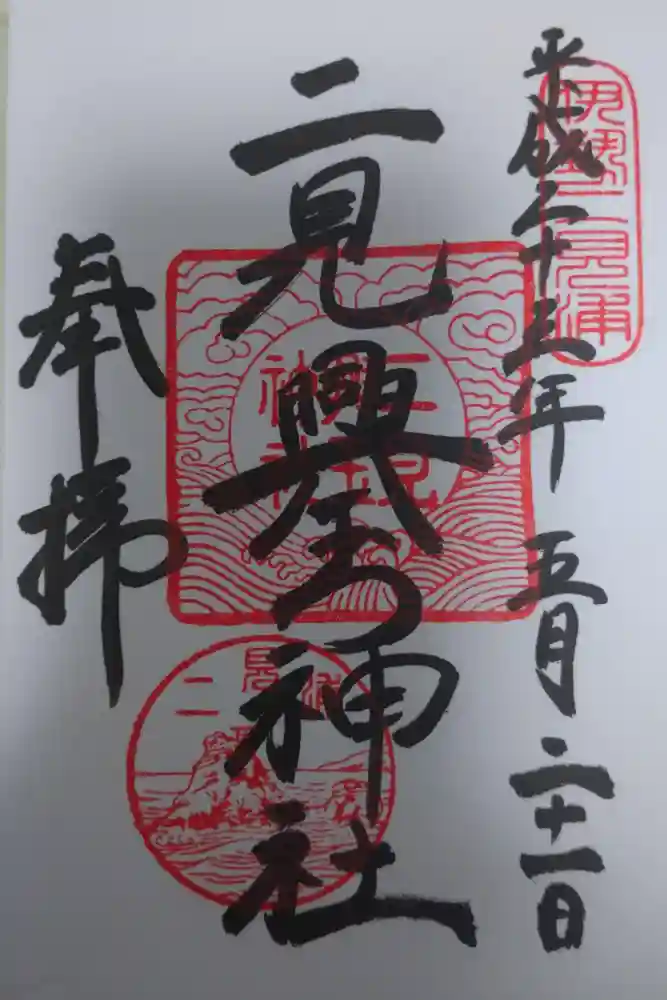 平成二十三年 五月 二十一日
伊勢二見浦
二見興玉神社
二見
興玉
神社
二見浦
奉拝